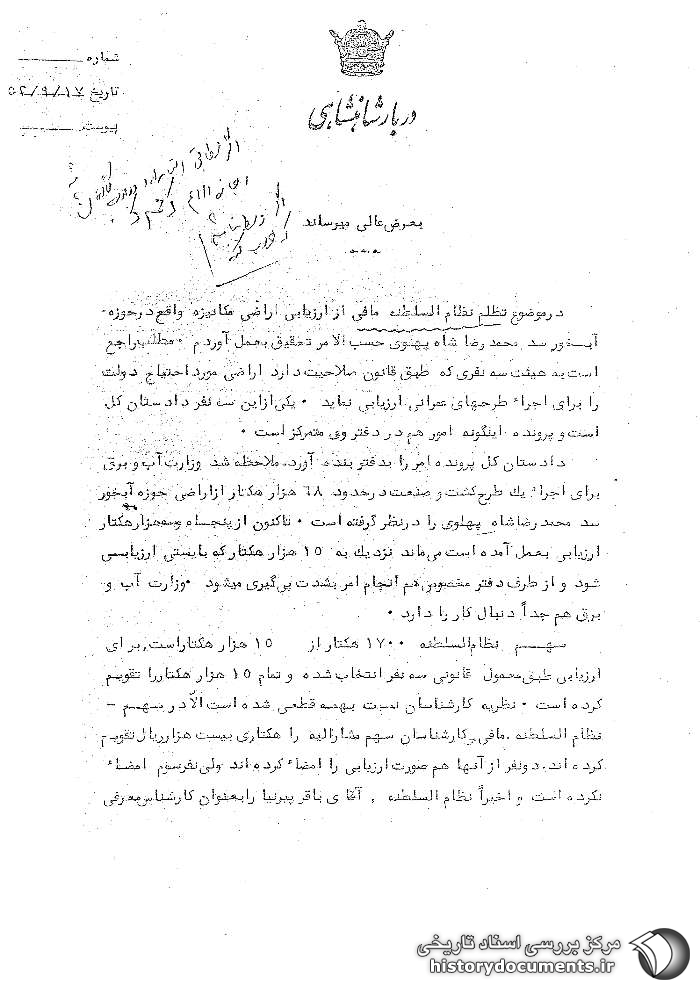 شماره
تاریخ ۵۲/۹/۱۷
پیوست
دربار شاهنشاهی
بعرض عالی میرساند
در موضوع تظلم نظام السلطنه مافی از ارزیابی اراضی مکانیزه واقع در حوزه
آبخور سد محمد رضا شاه پهلوی حسب الامر تحقیق بعمل آوردم . مطلب راجع
است به هیئت سه نفری که طبق قانون صلاحیت دارد اراضی مورد احتیاج دولت
را برای اجراء طرحهای عمرانی ارزیابی نماید . یکی از این سه نفر دادستان کل
است و پرونده اینگونه امور هم در دفتر وی متمرکز است .
دادستان کل پرونده امر را بدفتر بنده آورد، ملاحظه شد وزارت آب و برق
برای اجراء یک طرح کشت و صنعت در حدود ۶۸ هزار هکتار از اراضی حوزه آبخور
سد محمد رضا شاه پهلوی را در نظر گرفته است . تاکنون از پنجاه و سه هزار هکتار
ارزیابی بعمل آمده است می ماند نزدیک به ۱۵ هزار هکتار که بایستی ارزیابی
شود و از طرف دفتر مخصوص هم انجام امر بشدت پی گیری میشود . وزارت آب و
برق هم جداً دنبال کار را دارد .
سهم نظام السلطنه ۱۷۰۰ هکتار از ۱۵ هزار هکتار است، برای
ارزیابی طبق معمول قانونی سه نفر انتخاب شده و تمام ۱۵ هزار هکتار را تقویم
کرده است . نظریه کارشناسان نسبت بهمه قطعی شده است الّا در سهم -
نظام السلطنه مافی، کارشناسان سهم مشارالیه را هکتاری بیست هزار ریال تقویم
کرده اند، دو نفر از آنها هم صورت ارزیابی را امضاء کرده اند ولی نفر سوم امضاء
نکرده است و اخیراً نظام السلطنه ، آقای باقر پیرنیا را بعنوان کارشناس معرفی
مرکز بررسی اسناد تاریخی
historydocuments.ir